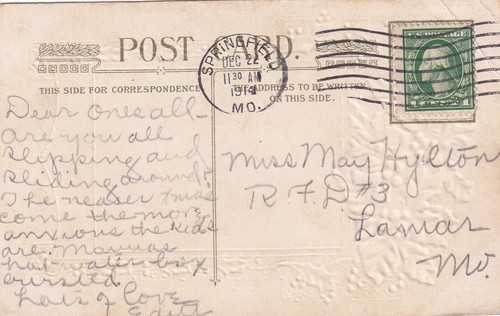 POST CARD.
SPRINGFIELD
DEC 22
11 30 AM
MO.
THIS SIDE FOR CORRESPONDENCE
THE ADDRESS TO BE WRITTEN
ON THIS SIDE.
Dear Ones all—
are you all
slipping and
sliding around?
The nearer Xmas
come the more
anxious the kids
are. Mammas
hot water
bursted
Lots of love
Miss May Hylton
R.F.D #3
Lamar
Mo.